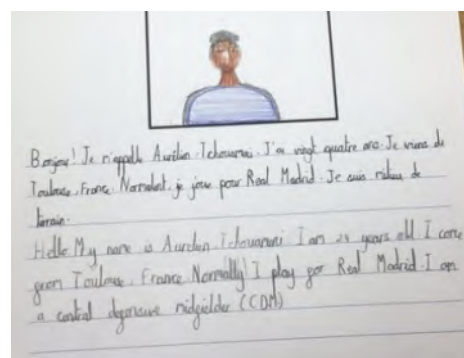 Bonjou! Je m'appelle Aurélien Tchouameni. J'ai vingt quatre ans. Je viens de
Toulouse, France. Normalent, je joue pour Real Madrid. Je suis milieu de
terrain.
Hello My name is Aurelien Tchouameni I am 24 years old I come
from Toulouse, France Normally I play for Real Madrid. I am
a central defensive midfielder (CDM)